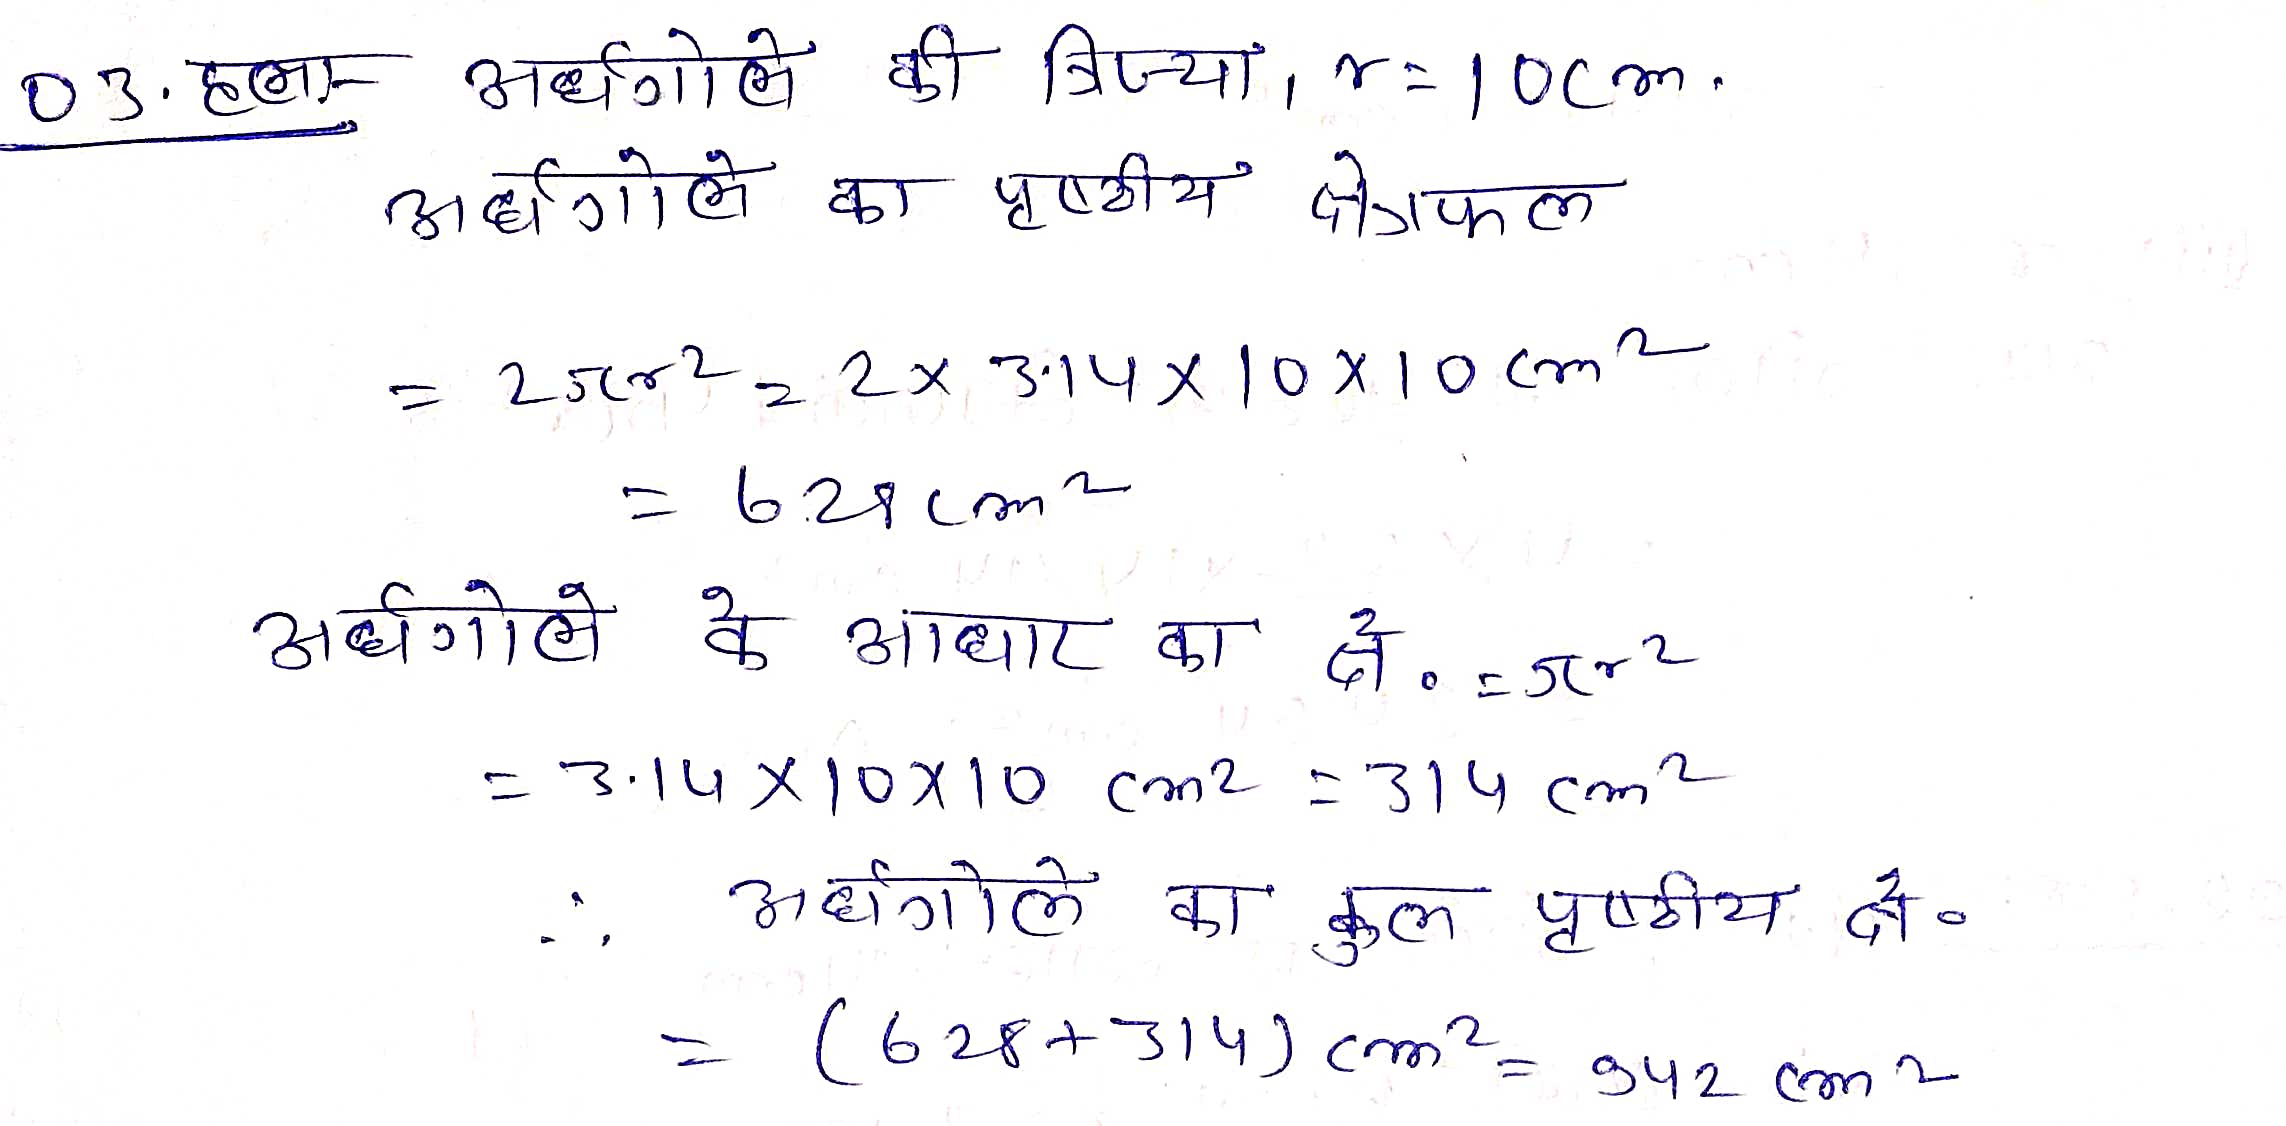 03. हल:- अर्धगोले की त्रिज्या, r = 10cm.
अर्धगोले का पृष्ठीय क्षेत्रफल
= 2πr² = 2 x 3.14 x 10 x 10 cm²
= 628 cm²
अर्धगोले के आधार का क्षे. = πr²
= 3.14 x 10 x 10 cm2 = 314 cm²
∴ अर्धगोले का कुल पृष्ठीय क्षे०
= (628 + 314) cm² = 942 cm²